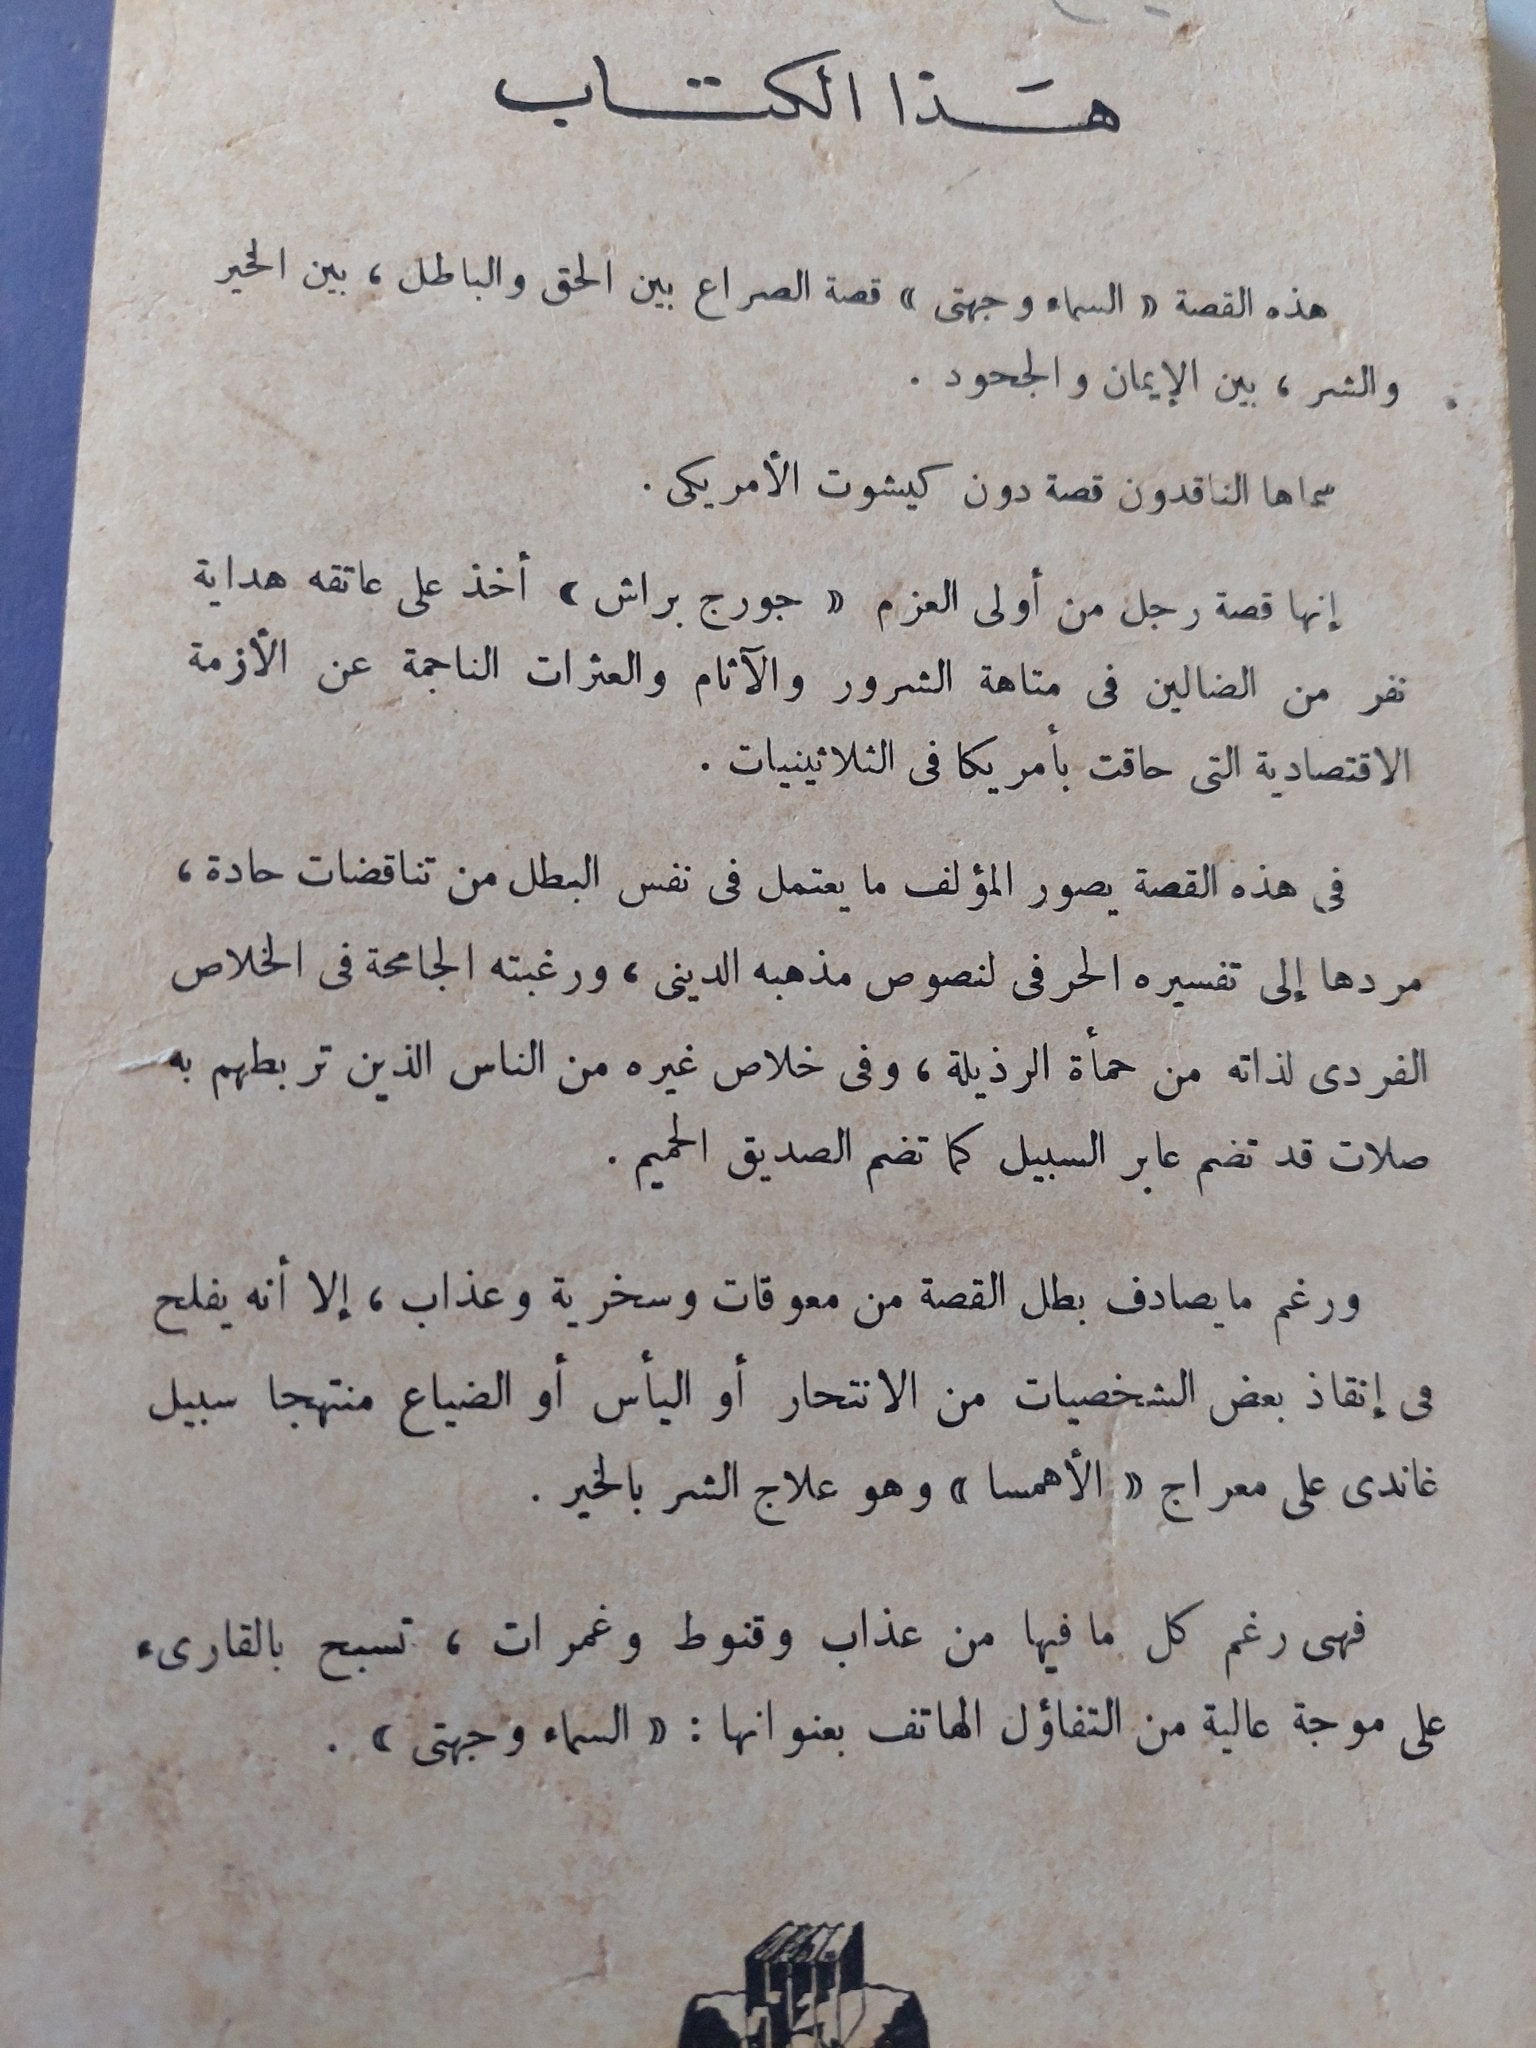 هَذا الكتاب
هذه القصة « السماء وجهتى » قصة الصراع بين الحق والباطل ، بين الخير
والشر ، بين الإيمان والجحود .
سماها الناقدون قصة دون كيشوت الأمريكى .
إنها قصة رجل من أولى العزم « جورج براش » أخذ على عاتقه هداية
نفر من الضالين فى متاهة الشرور والآثام والعثرات الناجمة عن الأزمة
الاقتصادية التى حاقت بأمريكا فى الثلاثينيات .
فى هذه القصة يصور المؤلف ما يعتمل فى نفس البطل من تناقضات حادة ،
مردها إلى تفسيره الحرفى لنصوص مذهبه الدينى ، ورغبته الجامحة فى الخلاص
الفردى لذاته من حمأة الرذيلة ، وفى خلاص غيره من الناس الذين تربطهم به
صلات قد تضم عابر السبيل كما تضم الصديق الحميم .
ورغم مايصادف بطل القصة من معوقات وسخرية وعذاب ، إلا أنه يفلح
فى إنقاذ بعض الشخصيات من الانتحار أو اليأس أو الضياع منتهجا سبيل
غاندى على معراج « الأهمسا » وهو علاج الشر بالخير .
فهى رغم كل مافيها من عذاب وقنوط وغمرات ، تسبح بالقارىء
على موجة عالية من التفاؤل الهاتف بعنوانها : « السماء وجهتى » .